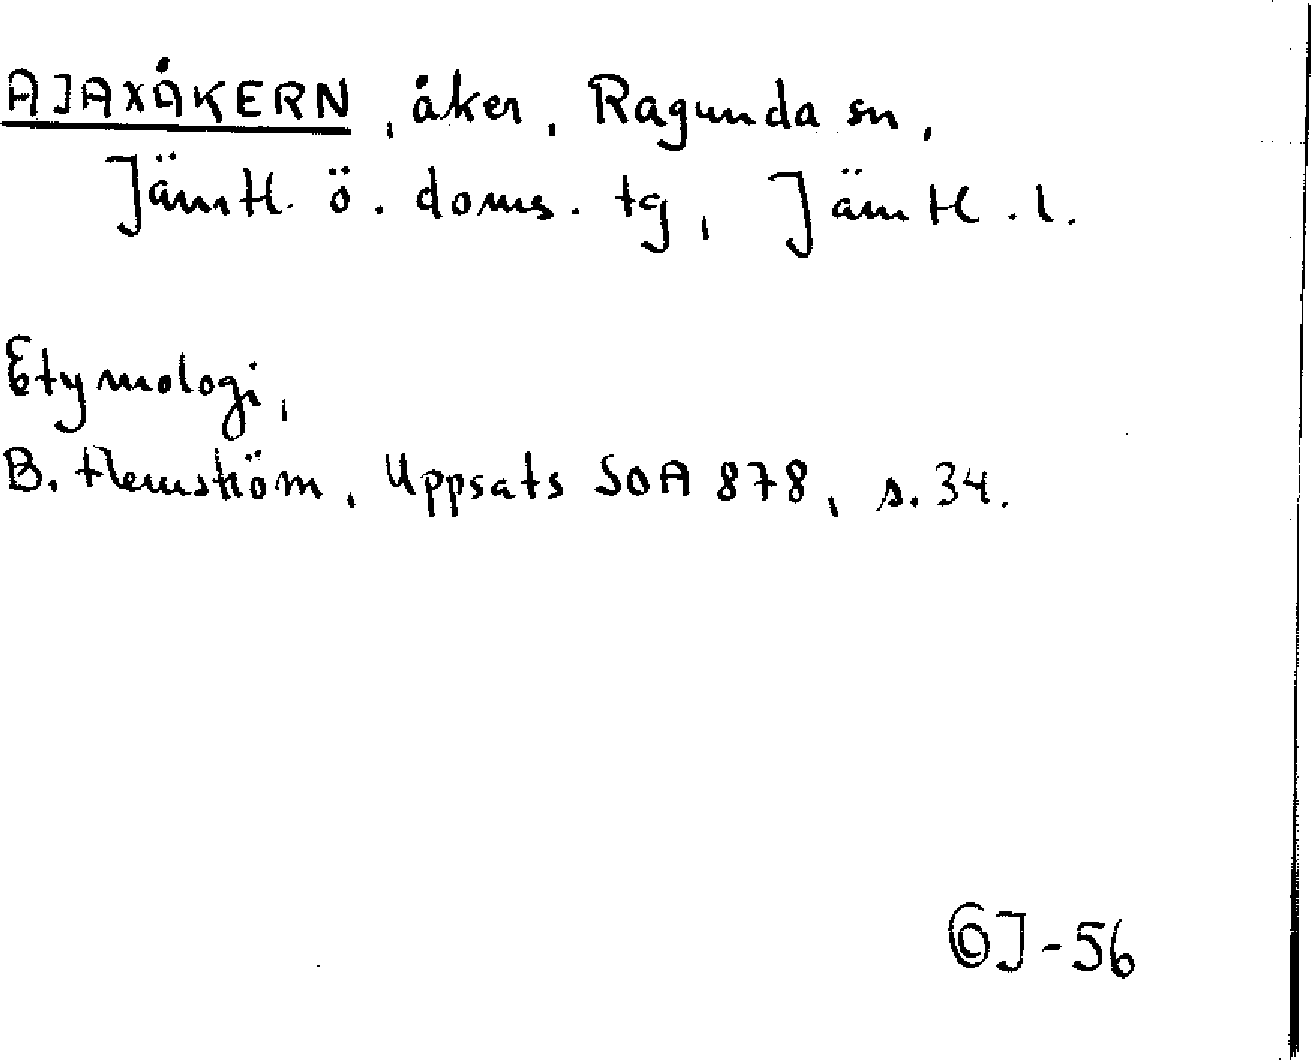 AJAXÅKERN, åker, Ragunda sn,
Jämtl. ö. doms. tg, Jämtl. l.
Etymologi,
B. Hemström, Uppsats SOA 878, s. 34.
GJ-56